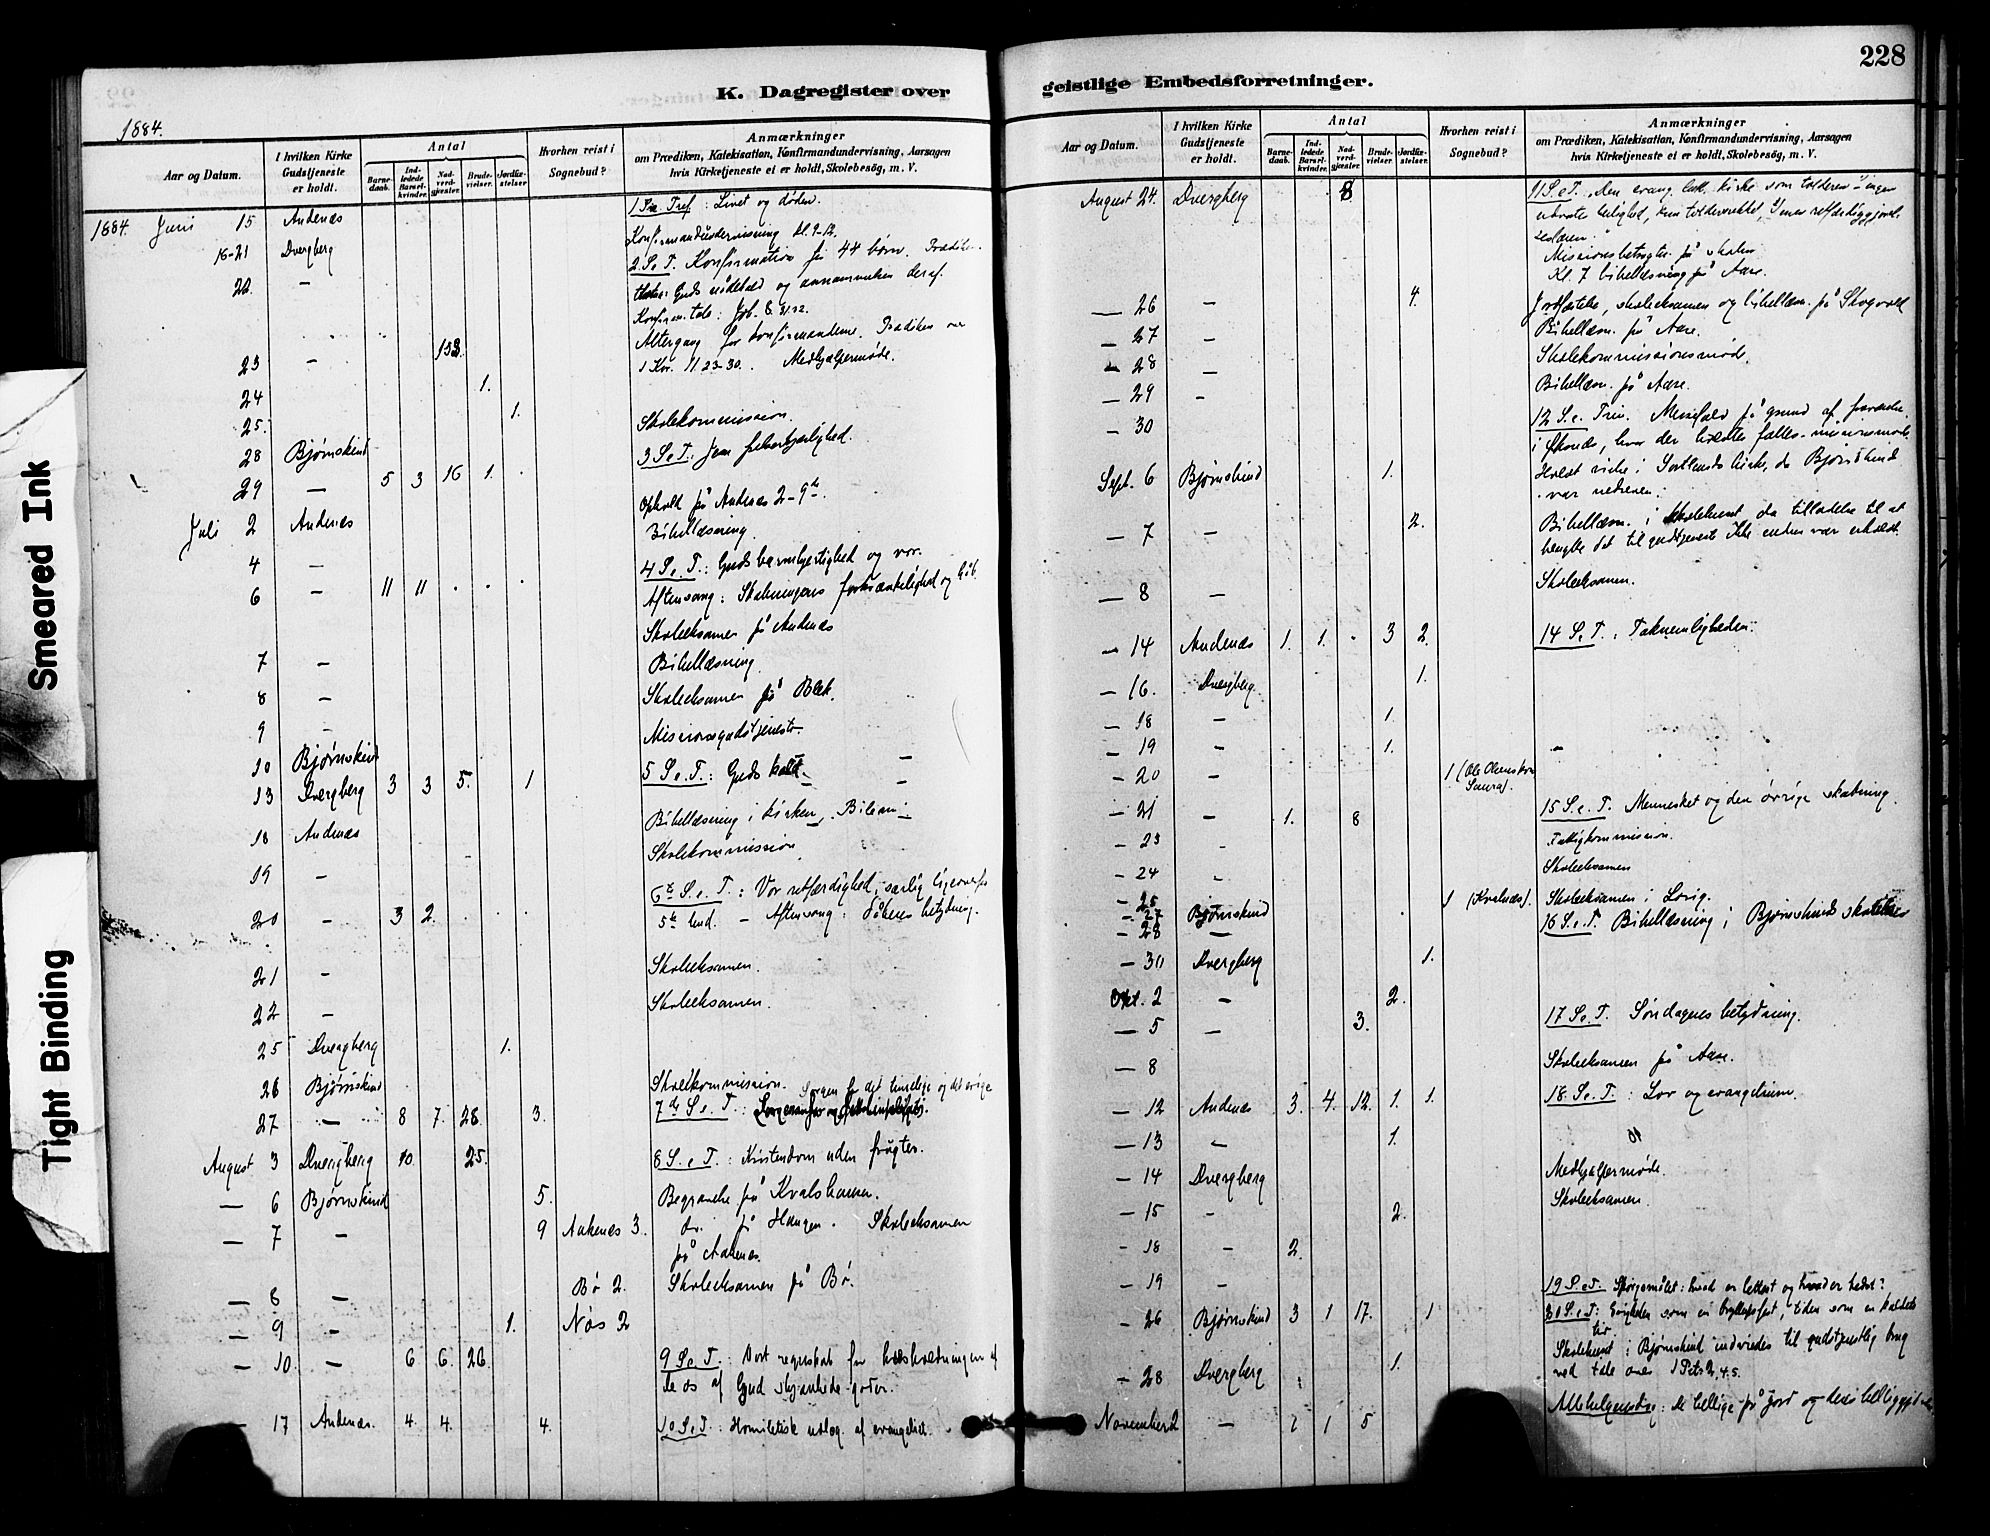 Smeared Ink
Tight Binding
K. Dagregister over
1884.
Aar og Datum.
I hvilken Kirke Gudstjeneste er holdt.
Antal
Barnedaab.
Indledede Barselkvinder.
Nadverdgjester.
Brudevielser.
Jordfæstelser.
Hvorhen reist i Sognebud?
Anmærkninger
om Prædiken, Katekisation, Konfirmandundervisning, Aarsagen
hvis Kirketjeneste ei er holdt, Skolebesög, m. V.
1884. Juni 15 Andenæs : Livet og døden.
16-21 Dvergberg Konfirmandundervisning kl. 9-12
22 — 2 S. e. T. Konfirmation for 44 børn.
Guds nådebud og annammelsen deraf.
Konfirm. tale:
Altergang for konfirmanderne. Prædiken over
23 — 1 Kor. 11 23-30. Medhjælpermøde.
24 1.
25. 1. Skolekommission
28 Bjørnskind 3 S. e. T.: Jesu
29 — 5 3 16 1.
Ophold på Andenæs 2-9de
Juli 2 Andenæs Bibellæsning
4 — 4 S. e. T.: Guds barmhjertighed og vor.
6 — 11 11 Aftensang: Skabningens forkrænkelighed og håb.
Skoleeksamen på Andenæs
7 — Bibellæsning
8 — Skoleeksamen på Blek.
9 — Missionsgudstjeneste.
10 Bjørnskind 5 S. e. T.: Guds kald.
13 Dvergberg 3 3 5. 1
18 Andenæs Bibellæsning i kirken, Bileam
Skolekommission
19 —
20 — 3 2. 6te S. e. T.: Vor retfærdighed, særlig ligeoverfor
5te bud. — Aftensang: Dåbens betydning.
21 — Skoleeksamen.
22 — Skoleeksamen.
25 Dvergberg 1.
26 Bjørnskind Skolekommission. Sorgen for det timelige og det evige
27 — 8 7. 28. 3. 7de S. e. T.:
August 3 Dvergberg 10. 25. 8 S. e. T.: Kristendom uden frugter.
— 6 Bjørnskind 5. Begravelse på
— 7 — 9 Aakenæs 3. do. på Haugen. Skoleeksamen
på Aaknæs.
— 8 — Bø 2. Skoleeksamen på Bø.
— 9 — 1. Nös 2
— 10. — 6 6. 26. 9 S. e. T.: Vort regnskab for husholdningen af
de os af Gud skjænkede goder.
— 17 Andenæs. 4. 4. 4. 10 S. e. T.: Homiletisk udlæg. af evangeliet.
geistlige Embedsforretninger.
228
Aar og Datum.
I hvilken Kirke Gudstjeneste er holdt.
Antal
Barnedaab.
Indledede Barselkvinder.
Nadverdgjester.
Brudevielser.
Jordfæstelser.
Hvorhen reist i Sognebud?
Anmærkninger
om Prædiken, Katekisation, Konfirmandundervisning, Aarsagen
hvis Kirketjeneste ei er holdt, Skolebesög, m. V.
August 24. Dvergberg 8 11 S. e. T. Den evang. luth. kirke som tolderen: ingen
Missionsbetragtn. på skolen
Kl. 7 bibellæsning på Aase.
— 26 — 4. Jordfæstelse, skoleeksamen og bibellæsn. på Skogvold
— 27 — Bibellæsn. på Aase.
— 28 — Skolekommissionsmøde.
— 29 — Bibellæsn. på Aase.
— 30 12 S. e. Trin. Messefald på grund af fraværelse
Sept. 6 Bjørnskind 1. Holdt vielse i Sortlands kirke, da Bjørnskind
var nedreven.
— 7 — 2. Bibellæsn. i skolehuset da tilladelse til at
benytte det til gudstjeneste ikke endnu var erholdt.
— 8 — Skoleeksamen.
— 14 Andenæs 1. 1. 3 2. 14 S. e. T. Taknemligheden.
— 16. Dvergberg. 1.
— 18 — 1.
— 19 — 1.
— 20 — 1 (Ole
Saura).
— 21 — 1. 8 15 S. e. T. Mennesket og den øvrige skabning.
— 23 Fattigkommission.
— 24 Skoleeksamen
— 25 1 (Kvalnæs). Skoleeksamen i
— 27 Bjørnskind
— 28 — 16 S. e. T. Bibellæsning i Bjørnskinds skolehus
— 30 Dvergberg 1.
Okt. 2 — 2.
— 5 — 3. 17 S. e. T. Søndagens betydning.
— 8 Skoleeksamen på Aase.
— 12 Andenæs 3. 4. 12. 1. 1. 18. S. e. T.: Lov og evangelium.
— 13 — 1.
— 14 Dvergberg Medhjælpermøde.
— 15 — 2. Skoleeksamen
— 18 — 2.
— 19 — 19 S. e. T. Spørgsmålet: hvad er lettest og hvad er bedst?
— 26 Bjørnskind 3 1 17. 1 S. e. T: Evigheden som en bryllupsfest, tiden som en kaldelses
tid
Skolehuset i Bjørnskind indviedes til gudstjenstlig brug
— 28 Dvergberg 1. ved tale over 1 Pet. 2, 4. 5.
November 2 — 2 1 5 Allehelgensdag: De hellige på jord og deres